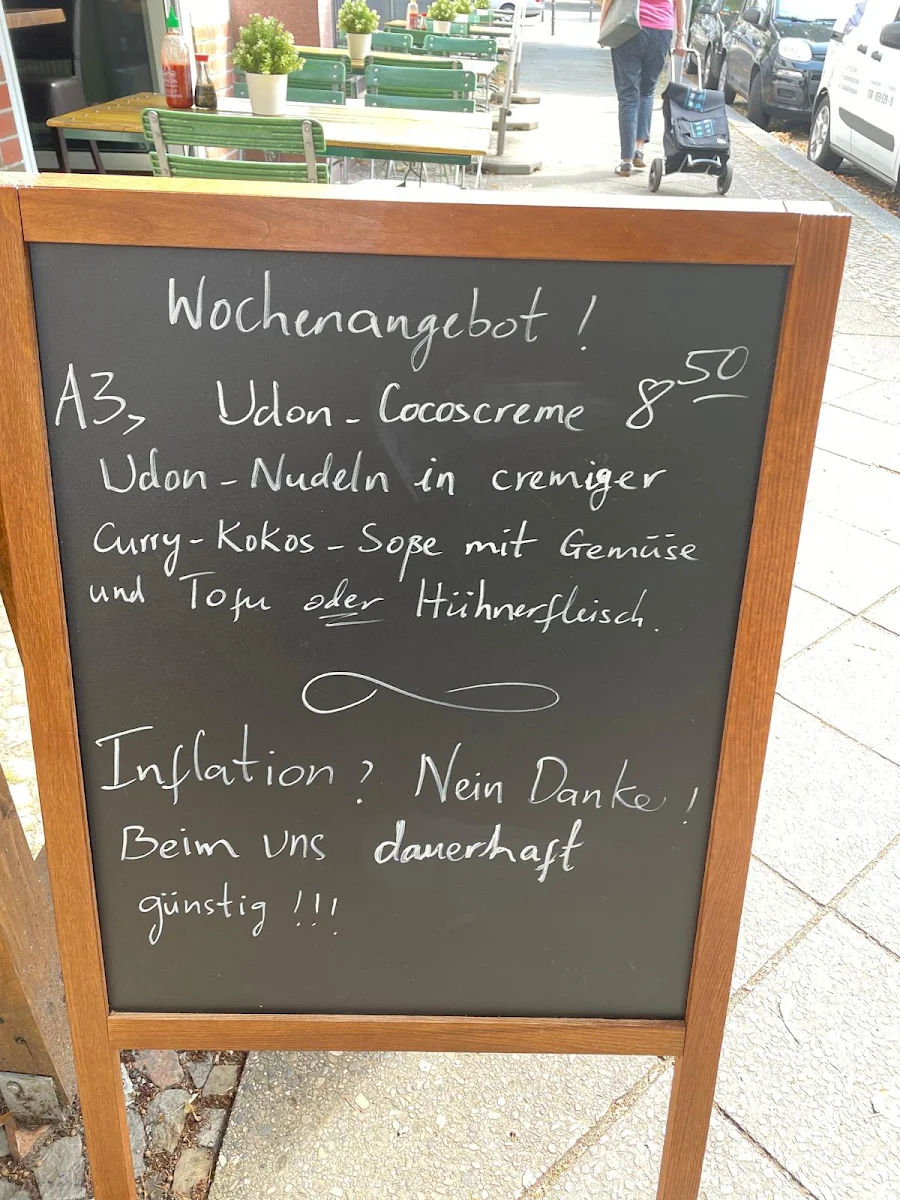 Wochenangebot !
A3, Udon-Cocoscreme 8 50
Udon-Nudeln in cremiger
Curry-Kokos-Soße mit Gemüse
und Tofu oder Hühnerfleisch.
Inflation? Nein Danke!
Beim uns dauerhaft
günstig !!!